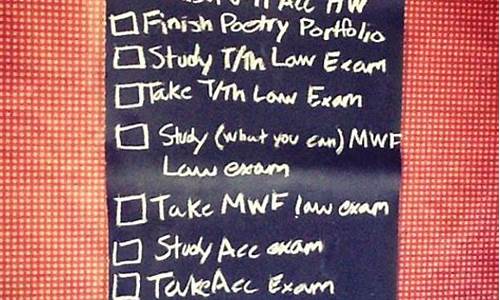 Acc HW
Finish Poetry Portfolio
Study T/Th Law Exam
Take T/Th Law Exam
Study (what you can) MWF
Law exam
Take MWF law exam
Study Acc exam
Take Acc Exam